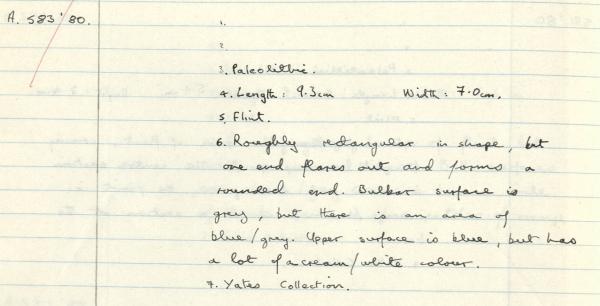 A. 583'80.
1.
2.
3. Paleolithic.
4. Length: 9.3cm Width: 7.0cm.
5. Flint.
6. Roughly rectangular in shape, but
one end flares out and forms a
rounded end. Bulbar surface is
grey, but there is an area of
blue/grey. Upper surface is blue, but has
a lot of a cream/white colour.
7. Yates Collection.